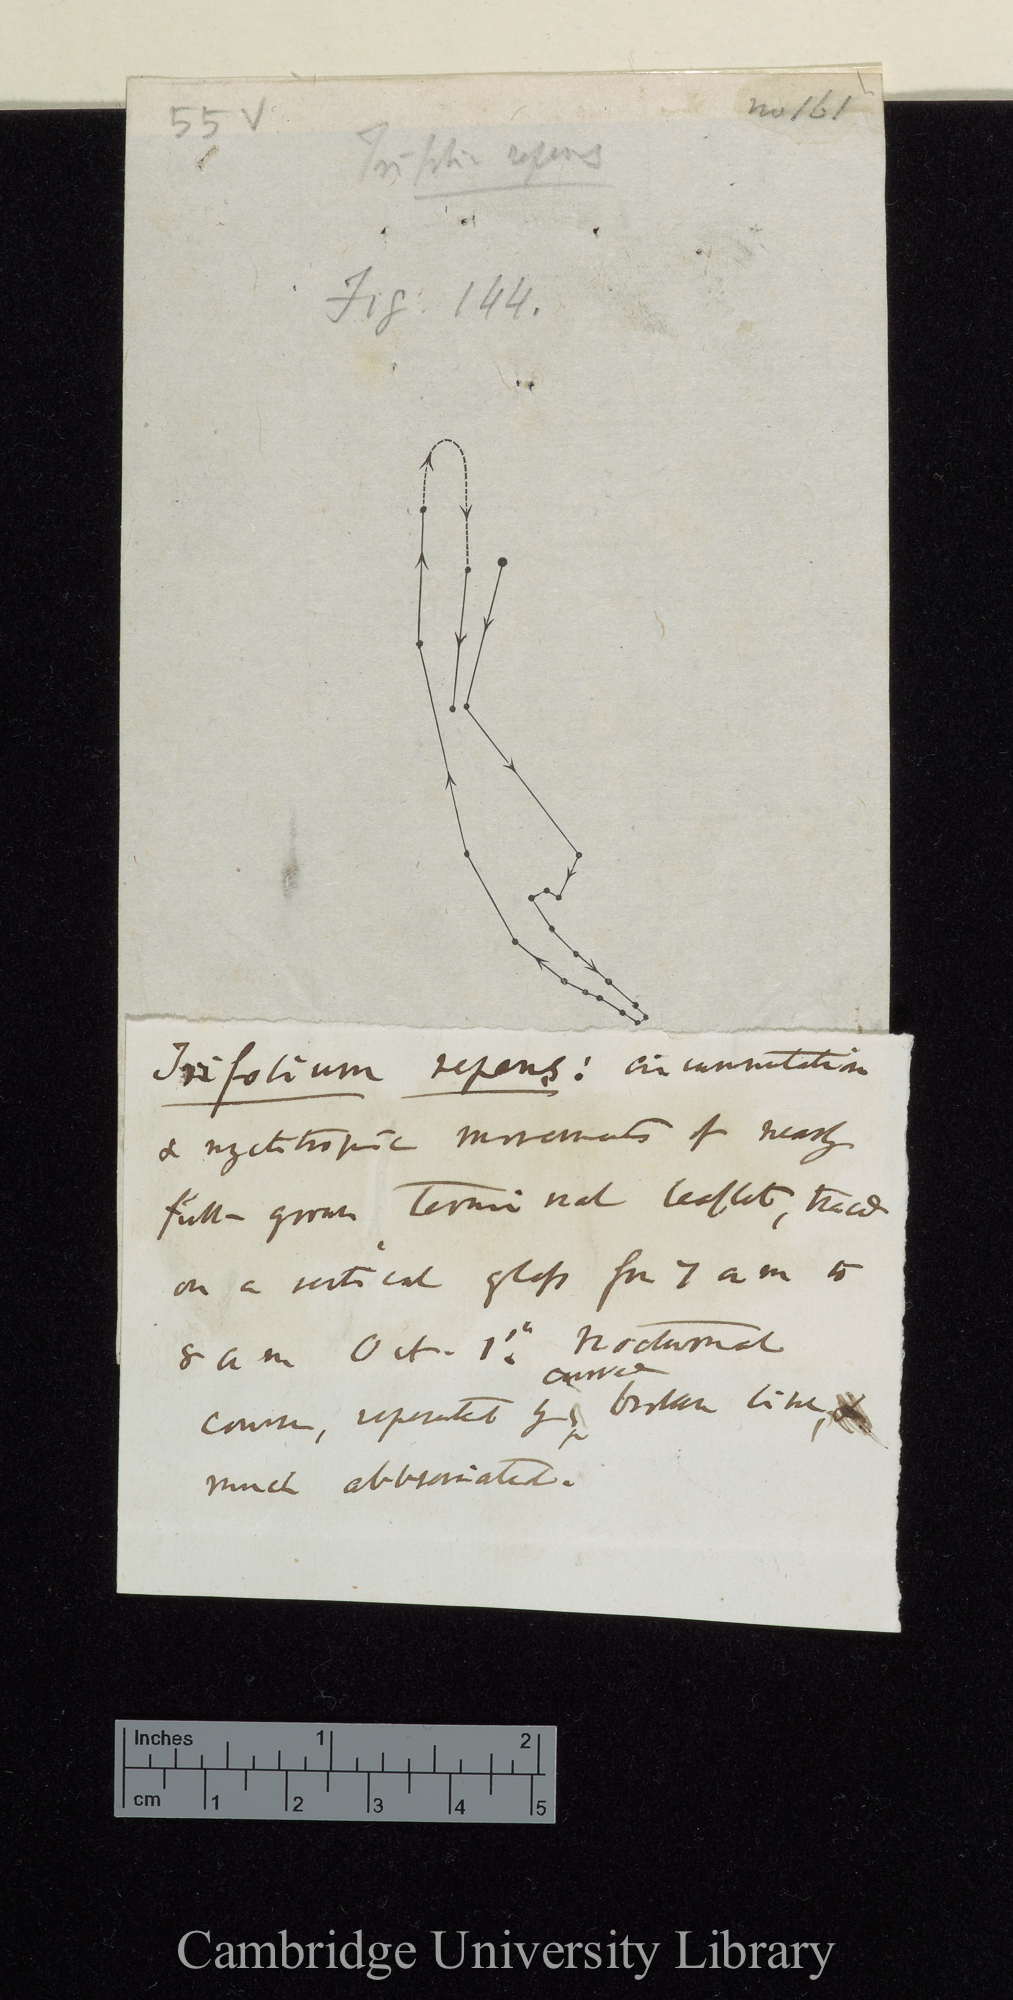 55 V
no 161
Trifolium repens
Fig. 144.
Trifolium repens: circumnutation
& nyctitropic movements of nearly
full-grown terminal leaflet, traced
on a vertical glass from 7 am to
8 am Oct. 1st. Nocturnal
curved
course, represented by broken line,
much abbreviated.
Inches 1 2
cm 1 2 3 4 5
Cambridge University Library